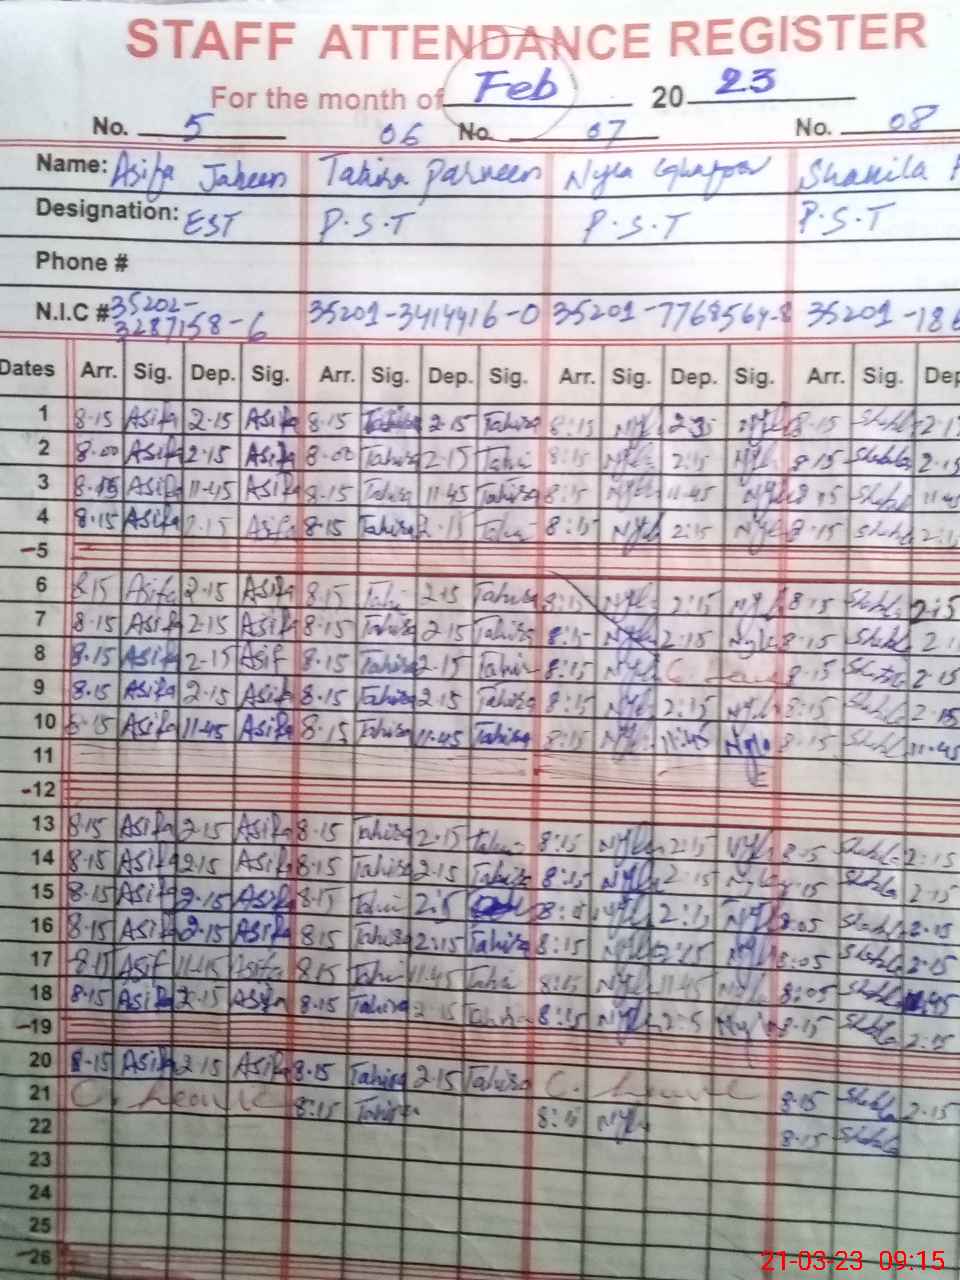 STAFF ATTENDANCE REGISTER
For the month of Feb 2023
No. 5 06 No. 07 No. 08
Name: Asifa Jabeen Tahira Parveen Nyla Ghafoor Shahila
Designation: EST P.S.T P.S.T P.S.T
Phone #
N.I.C # 35202-3287158-6 35201-3414416-0 35201-7768564-8 35201-186
Dates Arr. Sig. Dep. Sig. Arr. Sig. Dep. Sig. Arr. Sig. Dep. Sig. Arr. Sig. Dep
1 8-15 Asifa 2-15 Asifa 8-15 Tahira 2-15 Tahira 8:15 Nyla Nyla 8-15
2 8-00 Asifa 2-15 Asifa 8-00 Tahira 2-15 8:15 Nyla 2:15 Nyla 8-15 2-15
3 8-15 Asifa 11-45 Asifa 8-15 Tahira 11-45 Tahira 8:15 Nyla 11-45 Nyla 11-45
4 8-15 Asifa 2-15 Asifa 8-15 Tahira 2-15 8:15 Nyla 2:15 Nyla 8-15 2:15
-5
6 8-15 Asifa 2-15 Asifa 8-15 2-15 Tahira 8:15 Nyla 2:15 Nyla 8-15 2:15
7 8-15 Asifa 2-15 Asifa 8-15 Tahira 2-15 Tahira 8:15 Nyla 2:15 Nyla 8-15
8 8-15 Asifa 2-15 Asif 8-15 Tahira 2-15 8:15 Nyla C. 8-15 2-15
9 8-15 Asifa 2-15 Asifa 8-15 Tahira 2-15 Tahira 8:15 Nyla 2:15 Nyla 8:15 2-15
10 8-15 Asifa 11-45 Asifa 8-15 Tahira 11-45 Tahira 8:15 Nyla 11:45 Nyla 8-15 11-45
11
-12
13 8-15 Asifa 2-15 Asifa 8-15 Tahira 2-15 8:15 Nyla 2:15 Nyla 8-15 2:15
14 8-15 Asifa 2-15 Asifa 8-15 Tahira 2-15 Tahira 8:15 Nyla 2:15 Nyla 2-15
15 8-15 Asifa 2-15 Asifa 8-15 Nyla 2:15 Nyla 8:05 2-15
16 8-15 Asifa 2-15 Asifa 8-15 Tahira 2:15 Tahira 8:15 Nyla 2:15 Nyla 8:05 2-15
17 8-15 Asif 11-45 Asifa 8-15 11-45 8:15 Nyla 11-45 Nyla 8:05 11-45
18 8-15 Asifa 2-15 Asifa 8-15 Tahira 2-15 8:15 Nyla Nyla 8-15 2-15
-19
20 8-15 Asifa 2-15 Asifa 8-15 Tahira 2-15 Tahira C. Leave 8-15 2-15
21 C. Leave 8:15 Tahira 8:15 Nyla 8-15
22
23
24
25
-26
21-03-23 09:15